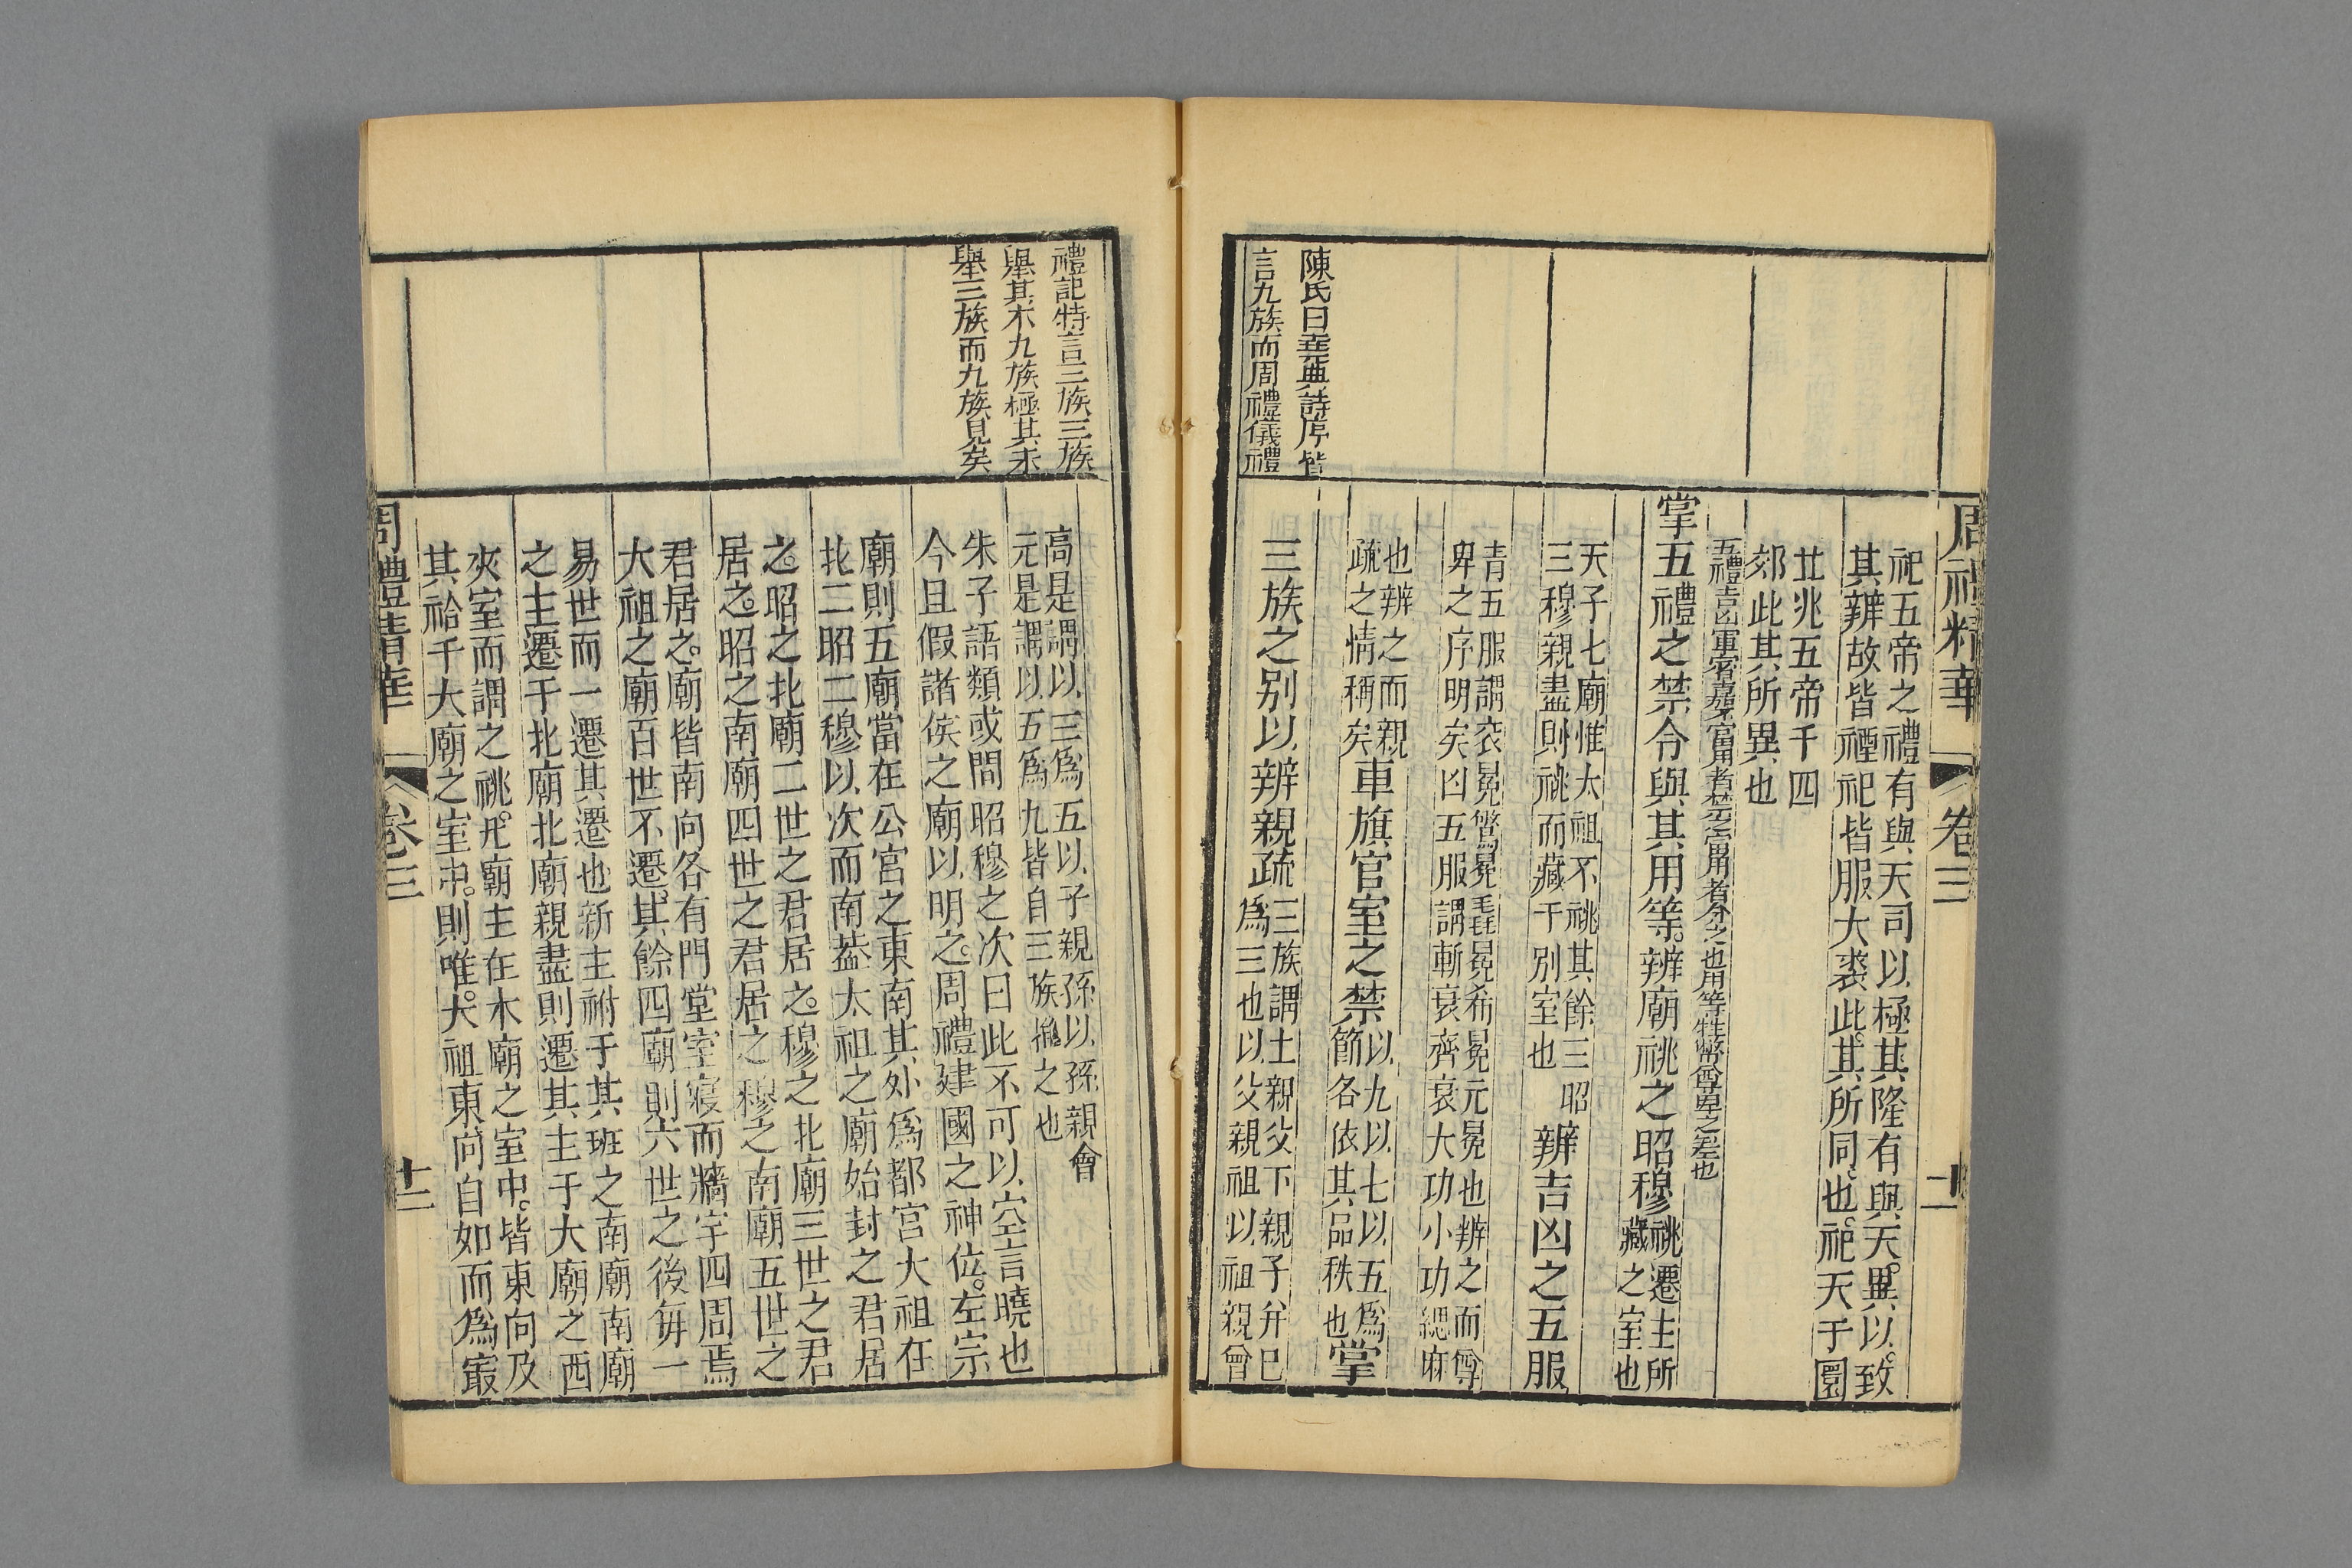 周禮精華
卷三
十一
祀五帝之禮有與天司以極其隆有與天異以致
其辨故皆禋祀皆服大裘此其所同也祀天于圜
丘兆五帝于四
郊此其所異也
五禮吉凶軍賓嘉禁官用者禁之當用者令之也用等牲幣尊卑之差也
掌五禮之禁令與其用等辨廟祧之昭穆祧遷主所
藏之室也
天子七廟惟太祖不祧其餘三昭
三穆親盡則祧而藏于別室也
辨吉凶之五服
吉五服謂衮冕鷩冕毳冕希冕元冕也辨之而尊
卑之序明矣凶五服謂斬衰齊衰大功小功緦麻
也辨之而親
疏之情稱矣
車旗官室之禁
以九以七以五爲
節各依其品秩也
掌
三族之別以辨親疏
三族謂士親父下親子弁巳
爲三也以父親祖以祖親曾
陳氏曰堯典詩序皆
言九族而周禮儀禮
禮記特言三族三族
舉其本九族極其末
舉三族而九族見矣
高是謂以三爲五以子親孫以孫親會
元是謂以五爲九皆自三族推之也
朱子語類或問昭穆之次曰此不可以空言曉也
今且假諸侯之廟以明之周禮建國之神位左宗
廟則五廟當在公宮之東南其外爲都宮大祖在
北二昭二穆以次而南葢太祖之廟始封之君居
之昭之北廟二世之君居之穆之北廟三世之君
居之昭之南廟四世之君居之穆之南廟五世之
君居之廟皆南向各有門堂室寢而牆宇四周焉
大祖之廟百世不遷其餘四廟則六世之後每一
易世而一遷其遷也新主祔于其班之南廟南廟
之主遷于北廟北廟親盡則遷其主于大廟之西
夾室而謂之祧凡廟主在本廟之室中皆東向及
其祫于大廟之室中則唯大祖東向自如而爲最
周禮精華
卷三
十二